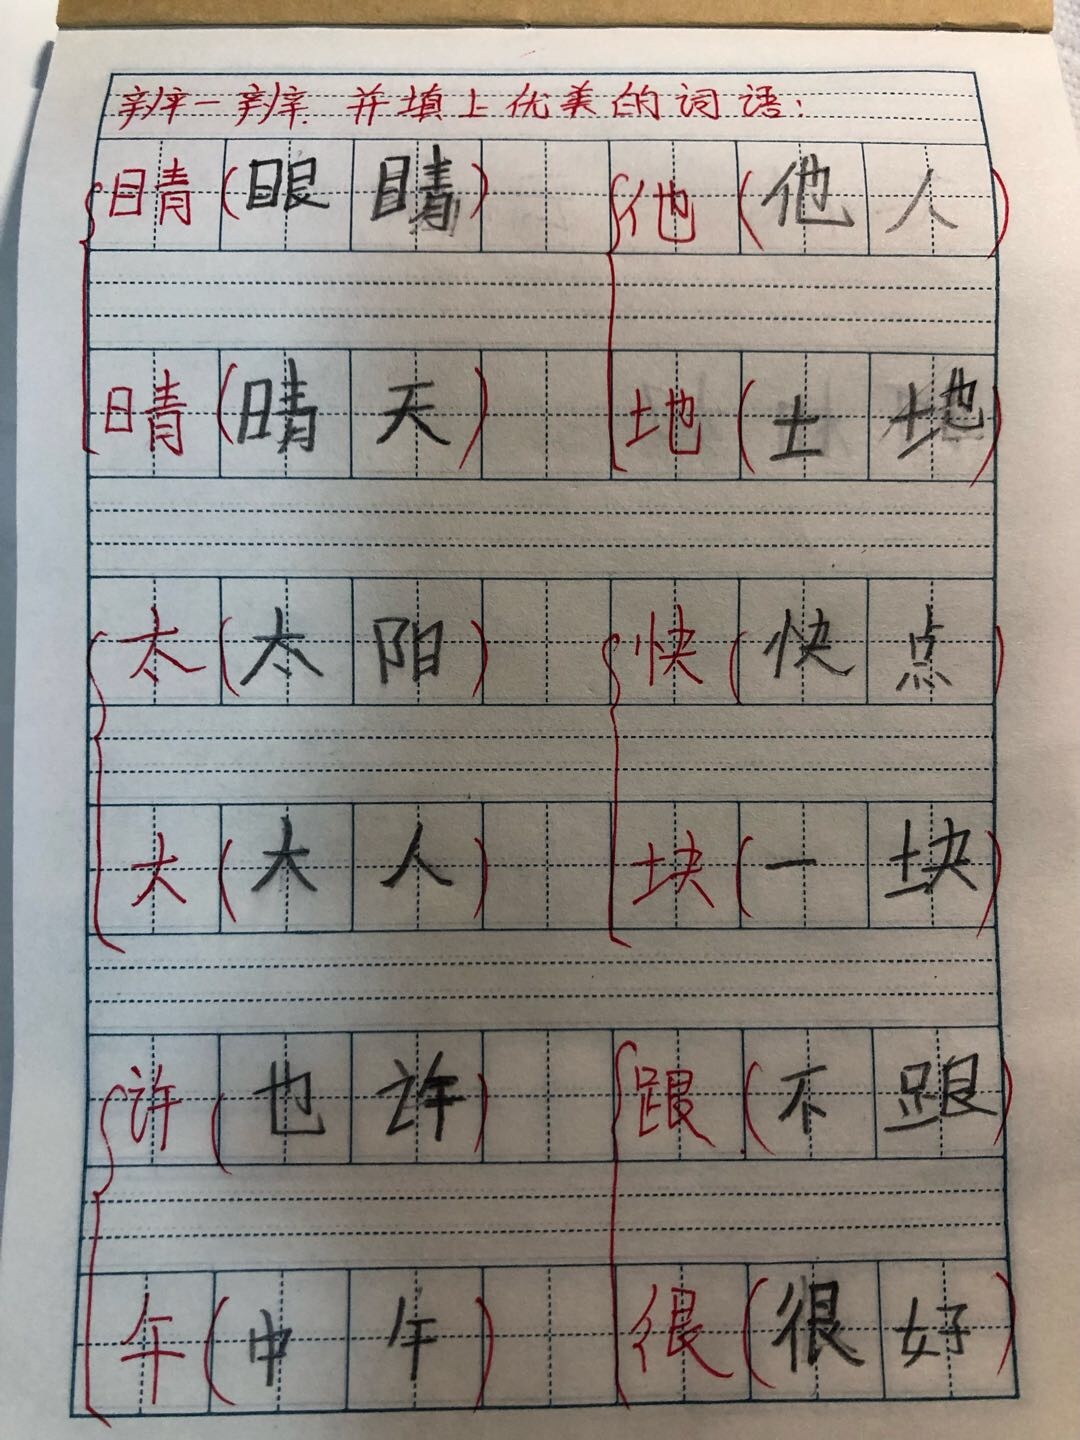 辨一辨.并填上优美的词语:
睛(眼睛) 他(他人)
晴(晴天) 地(土地)
太(太阳) 快(快点)
大(大人) 块(一块)
许(也许) 跟(不跟)
午(中午) 很(很好)